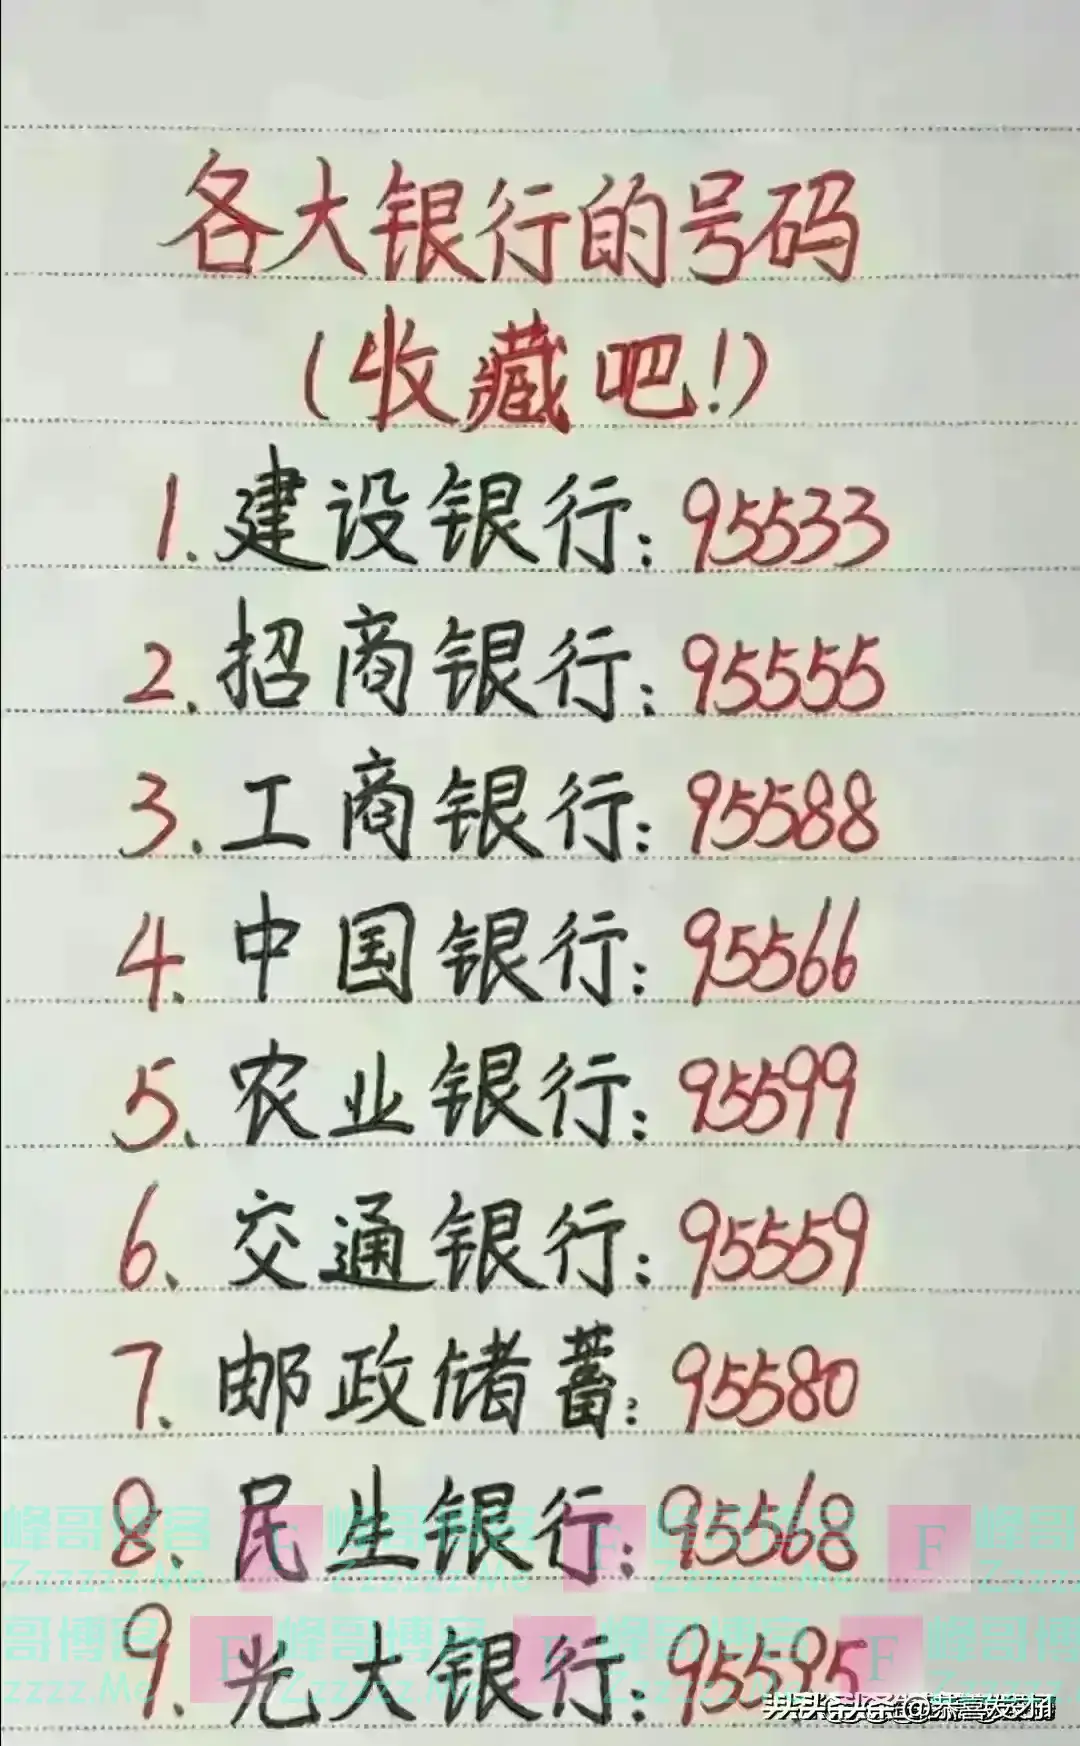 各大银行的号码
(收藏吧!)
1.建设银行:95533
2.招商银行:95555
3.工商银行:95588
4.中国银行:95566
5.农业银行:95599
6.交通银行:95559
7.邮政储蓄:95580
8.民生银行:95568
9.光大银行:95595
峰哥博客 F 峰哥博客 F 峰哥博客 F 峰哥
Zzzzzz.Me Zzzzzz.Me Zzzzzz.Me Zzzzz
哥博客 F 峰哥博客 F 峰哥博客 F 峰哥博
zzzz.Me Zzzzzz.Me Zzzzzz.Me